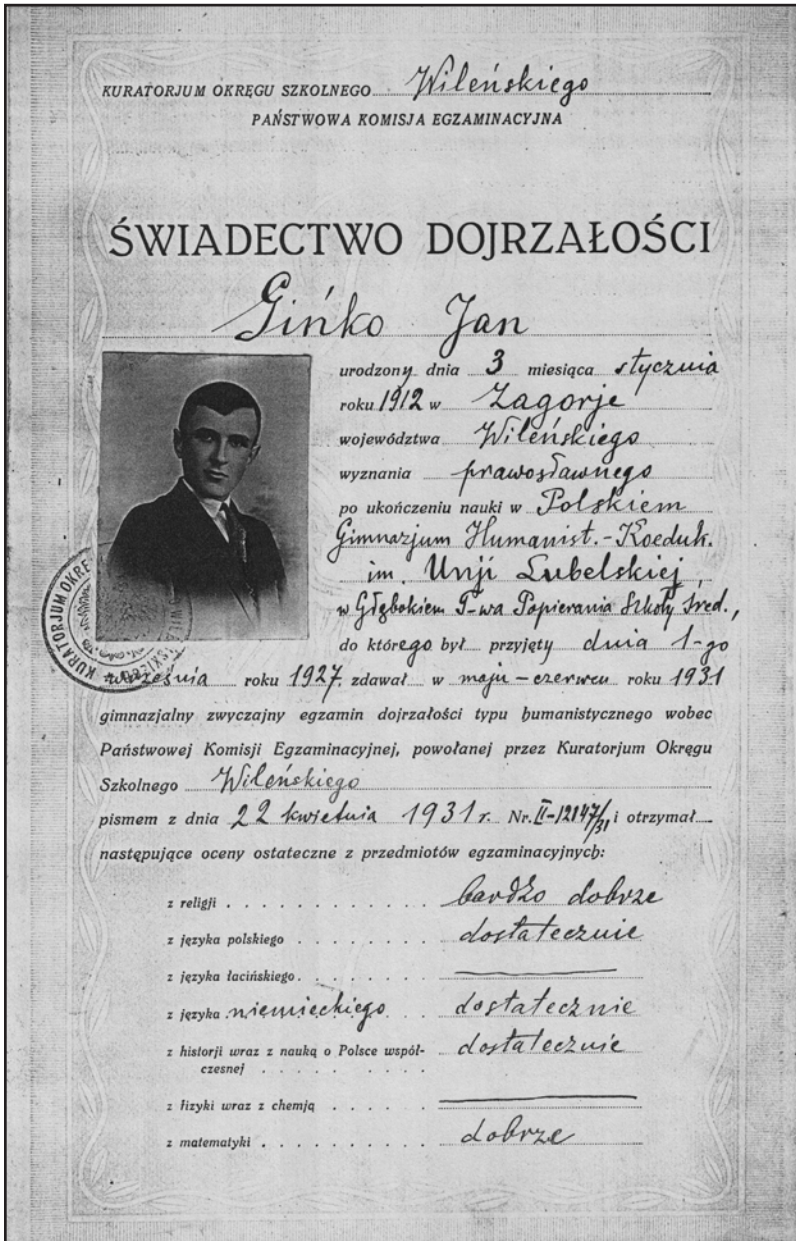 KURATORJUM OKRĘGU SZKOLNEGO Wileńskiego
PAŃSTWOWA KOMISJA EGZAMINACYJNA
ŚWIADECTWO DOJRZAŁOŚCI
Gińko Jan
urodzony dnia 3 miesiąca stycznia
roku 1912 w Zagorje
województwa Wileńskiego
wyznania prawosławnego
po ukończeniu nauki w Polskiem
Gimnazjum Humanist.-Koeduk.
im. Unji Lubelskiej,
w Głębokiem T-wa Popierania Szkoły Śred.,
do którego był przyjęty dnia 1-go
września roku 1927. zdawał w maju-czerwcu roku 1931
gimnazjalny zwyczajny egzamin dojrzałości typu humanistycznego wobec
Państwowej Komisji Egzaminacyjnej, powołanej przez Kuratorjum Okręgu
Szkolnego Wileńskiego
pismem z dnia 22 kwietnia 1931 r. Nr. II-12147/31 i otrzymał
następujące oceny ostateczne z przedmiotów egzaminacyjnych:
z religji . . . . . . . . . . . bardzo dobrze
z języka polskiego . . . . . . . dostatecznie
z języka łacińskiego . . . . . .
z języka niemieckiego dostatecznie
z historji wraz z nauką o Polsce współ- dostatecznie
czesnej . . . . . . . . .
z fizyki wraz z chemją . . . . .
z matematyki . . . . . . . . . dobrze
KURATORJUM OKRĘ